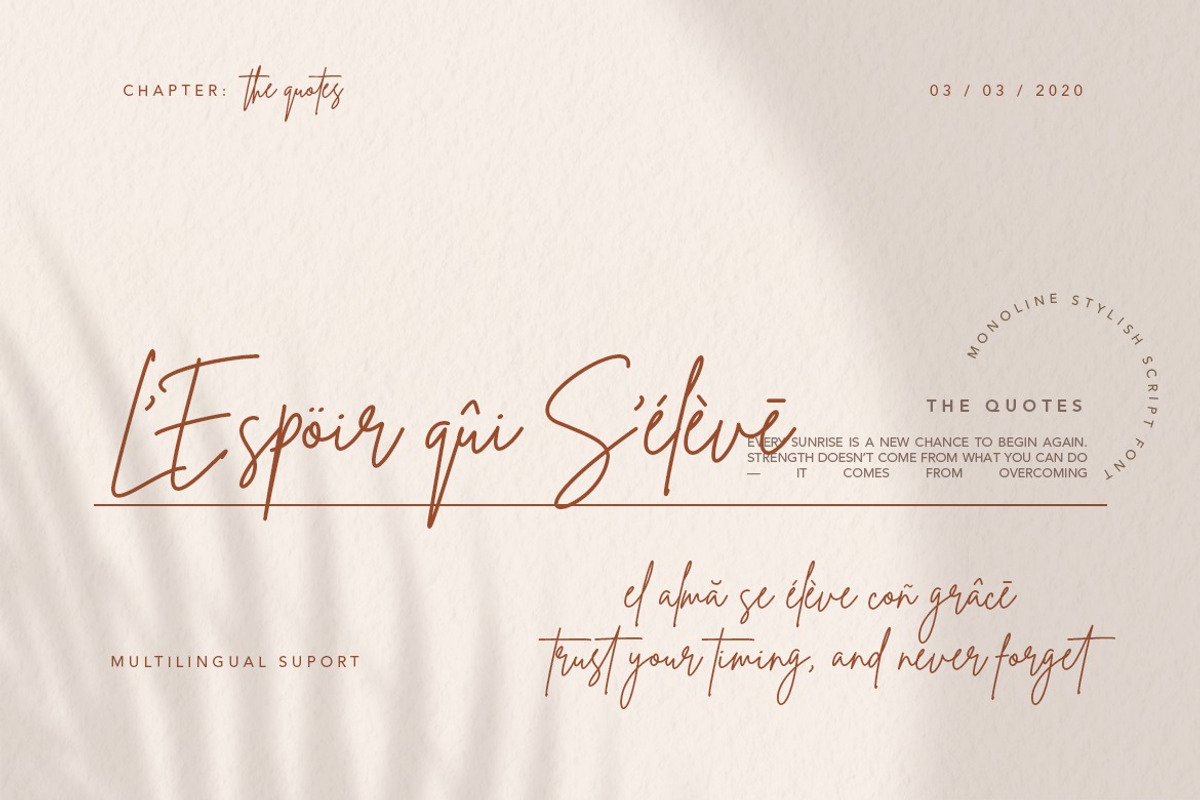 CHAPTER: the quotes
03 / 03 / 2020
MONOLINE STYLISH SCRIPT FONT
L'Espöir qûi S'élèvē
THE QUOTES
EVERY SUNRISE IS A NEW CHANCE TO BEGIN AGAIN.
STRENGTH DOESN'T COME FROM WHAT YOU CAN DO
— IT COMES FROM OVERCOMING
el almă se élève coñ grâcē
trust your timing, and never forget
MULTILINGUAL SUPORT